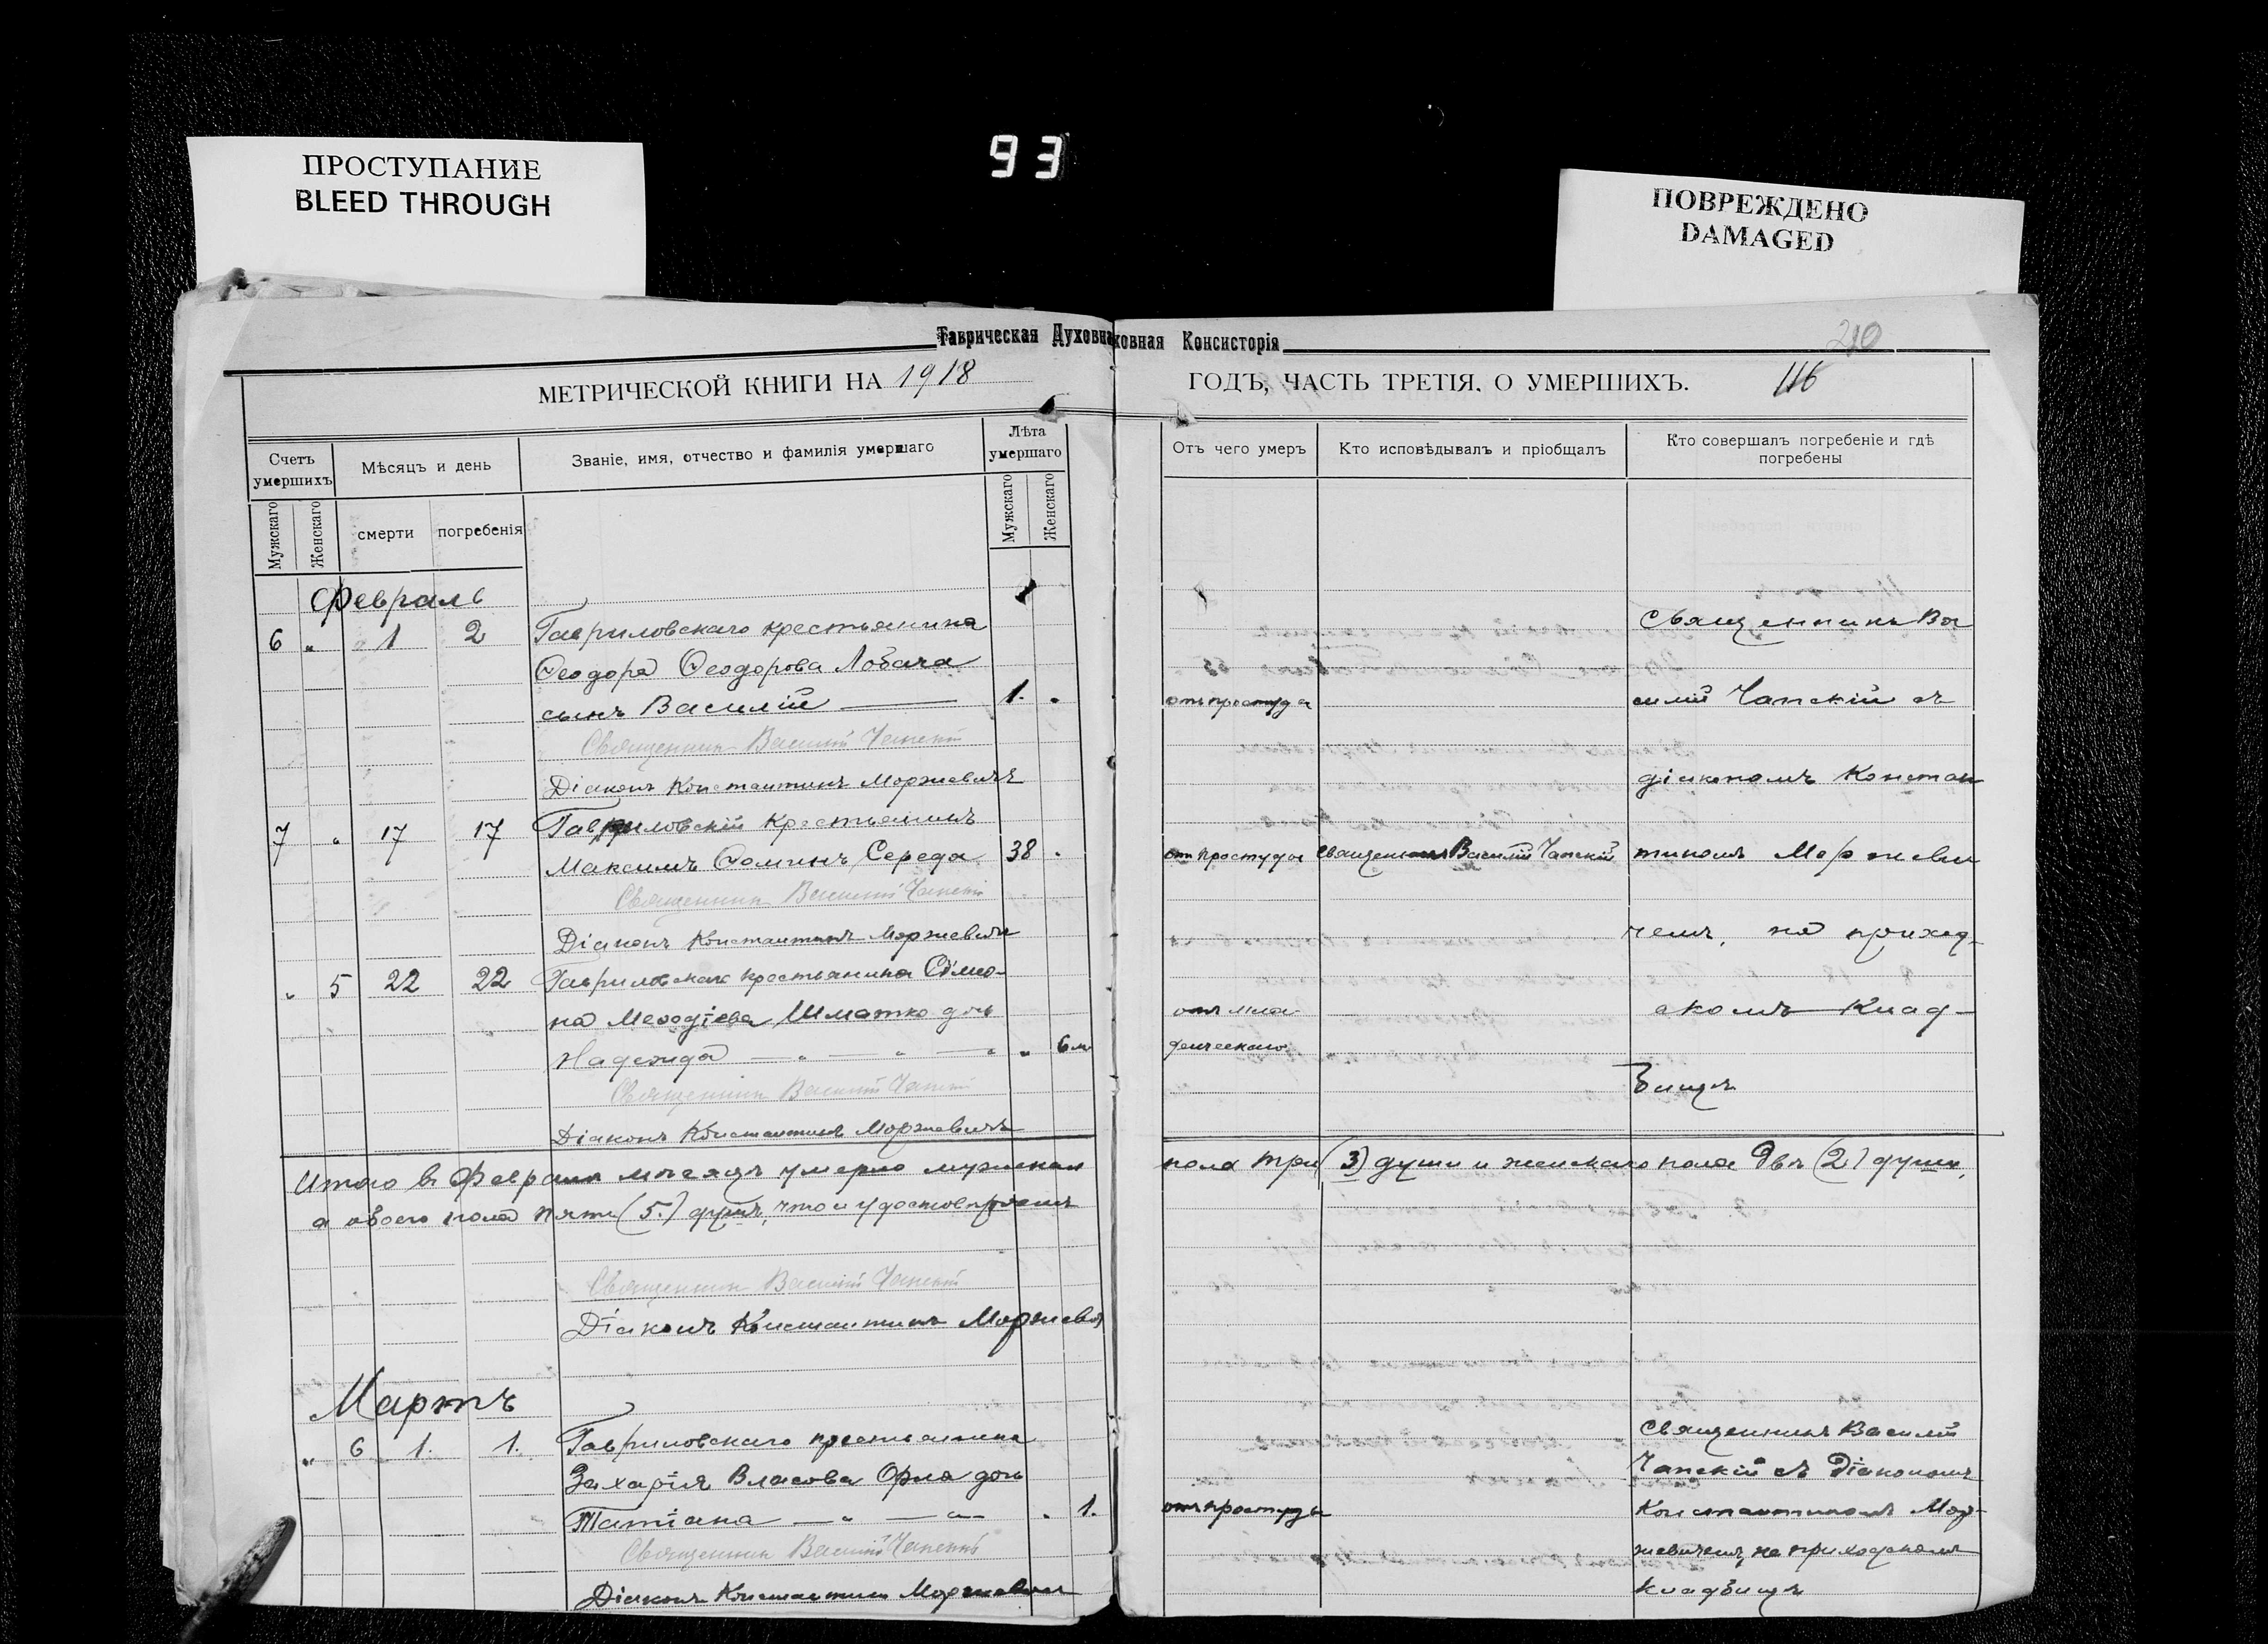 93
ПРОСТУПАНИЕ
BLEED THROUGH
ПОВРЕЖДЕНО
DAMAGED
Таврическая Духовна
ховная Консисторія
210
МЕТРИЧЕСКОЙ КНИГИ НА 1918
ГОДЪ, ЧАСТЬ ТРЕТІЯ, О УМЕРШИХЪ.
116
Счетъ умершихъ
Мѣсяцъ и день
Званіе, имя, отчество и фамилія умершаго
Лѣта умершаго
Мужскаго
Женскаго
смерти
погребенія
Мужскаго
Женскаго
Отъ чего умеръ
Кто исповѣдывалъ и пріобщалъ
Кто совершалъ погребеніе и гдѣ
погребены
Февраль
6 " 1 2 Гавриловскаго крестьянина
Ѳеодора Ѳеодорова Лобача
сынъ Василій 1. "
Священникъ Василій Чапскій
Діаконъ Константинъ Моржевичъ
7 " 17 17 Гавриловскій крестьянинъ
Максимъ Ѳоминъ Середа 38 "
Священникъ Василій Чапскій
Діаконъ Константинъ Моржевичъ
" 5 22 22 Гавриловскаго крестьянина Сѵмео-
на Меѳодіева Шматко дочь
Надежда — " — " — " " 6 м
Священникъ Василій Чапскій
Діаконъ Константинъ Моржевичъ
Итого въ Февралѣ мѣсяцѣ умерло мужскаго
а обоего пола пять (5.) душъ, что и удостовѣряемъ
Священникъ Василій Чапскій
Діаконъ Константинъ Моржевич
Мартъ
" 6 1. 1. Гавриловскаго крестьянина
Захарія Власова Орла дочь
Татіана — " — " — " 1.
Священникъ Василій Чапскій
Діаконъ Константинъ Моржевич
Священникъ Ва
отъ простуды
силій Чапскій съ
діакономъ Констан
отъ простуды Священникъ Василій Чапскій тиномъ Моржеви
чемъ, на приход-
отъ мла скомъ клад-
денческаго
бищѣ
пола три (3) души и женскаго пола двѣ (2) души,
Священникъ Василій
Чапскій съ Діакономъ
отъ простуды Константиномъ Мор-
жевичемъ на приходскомъ
кладбищѣ